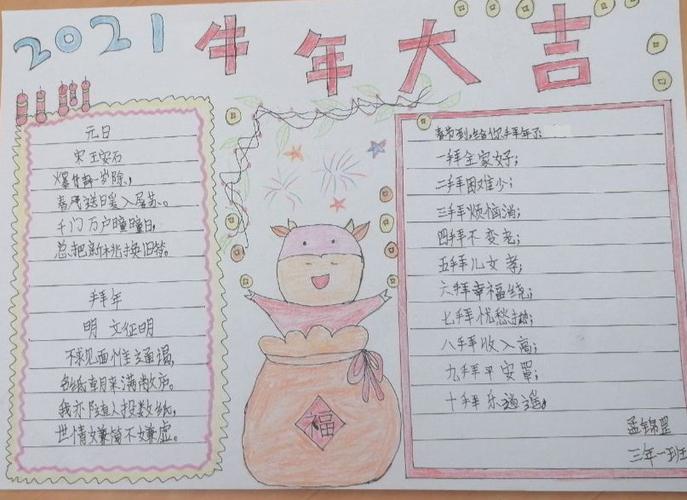 2021 牛年大吉
元日
宋 王安石
爆竹声岁除,
春风送暖入屠苏。
千门万户曈曈日,
总把新桃换旧符。
拜年
明 文征明
不求见面惟通谒,
名纸朝来满敝庐。
我亦随人投数纸,
世情嫌简不嫌虚。
福
春节到,给你拜年了
一拜全家好;
二拜困难少;
三拜烦恼消;
四拜不变老;
五拜儿女孝;
六拜幸福绕;
七拜忧愁抛;
八拜收入高;
九拜平安罩;
十拜乐逍遥。
孟锦
三年一班